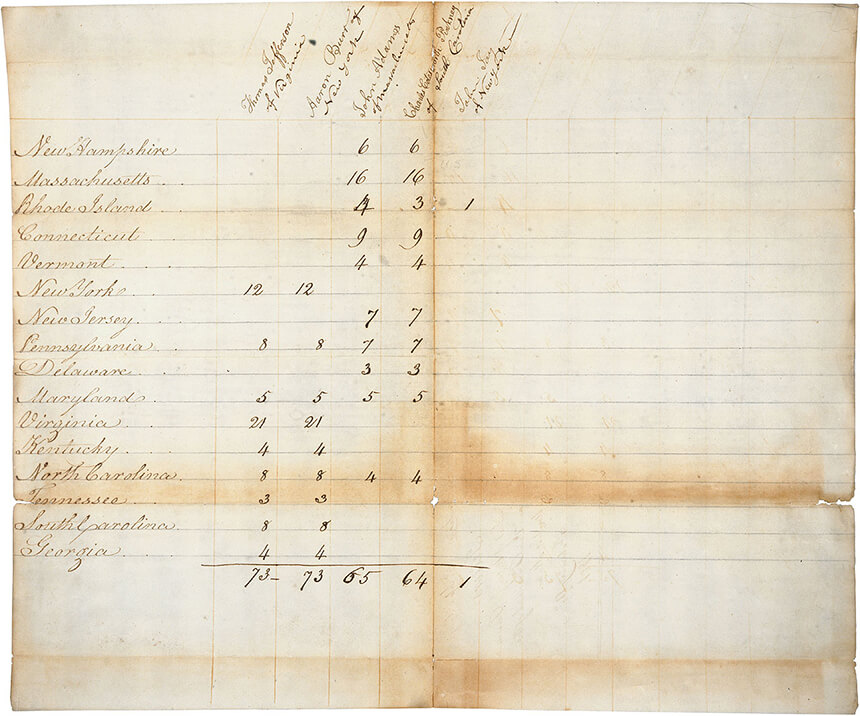 Thomas Jefferson of Virginia
Aaron Burr of New York
John Adams of Massachusetts
Charles Cotesworth Pinckney of South Carolina
John Jay of New York
New Hampshire 6 6
Massachusetts . . 16 16
Rhode Island . . 4 3 1
Connecticut . . 9 9
Vermont . . . 4 4
New York . . . 12 12
New Jersey . . . 7 7
Pennsylvania . . 8 8 7 7
Delaware . . . 3 3
Maryland . . . 5 5 5 5
Virginia . . . 21 21
Kentucky . . . 4 4
North Carolina . 8 8 4 4
Tennessee . . . 3 3
South Carolina . 8 8
Georgia . . . . 4 4
73- 73 65 64 1